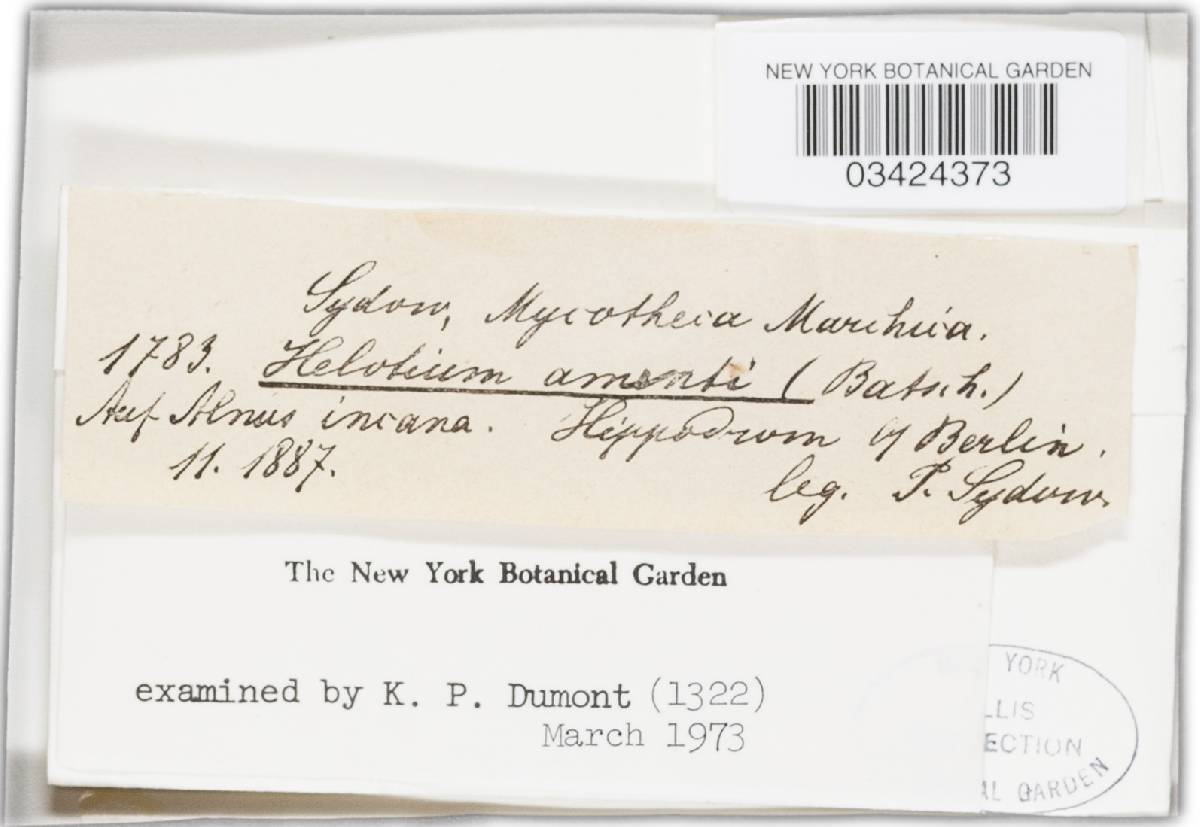 NEW YORK BOTANICAL GARDEN
03424373
Sydow, Mycotheca Marchica.
1783. Helotium amenti (Batsch.)
Auf Alnus incana. Hippodrom b/ Berlin.
11. 1887.
leg. P. Sydow.
The New York Botanical Garden
examined by K. P. Dumont (1322)
March 1973
YORK
LLIS
ECTION
AL GARDEN